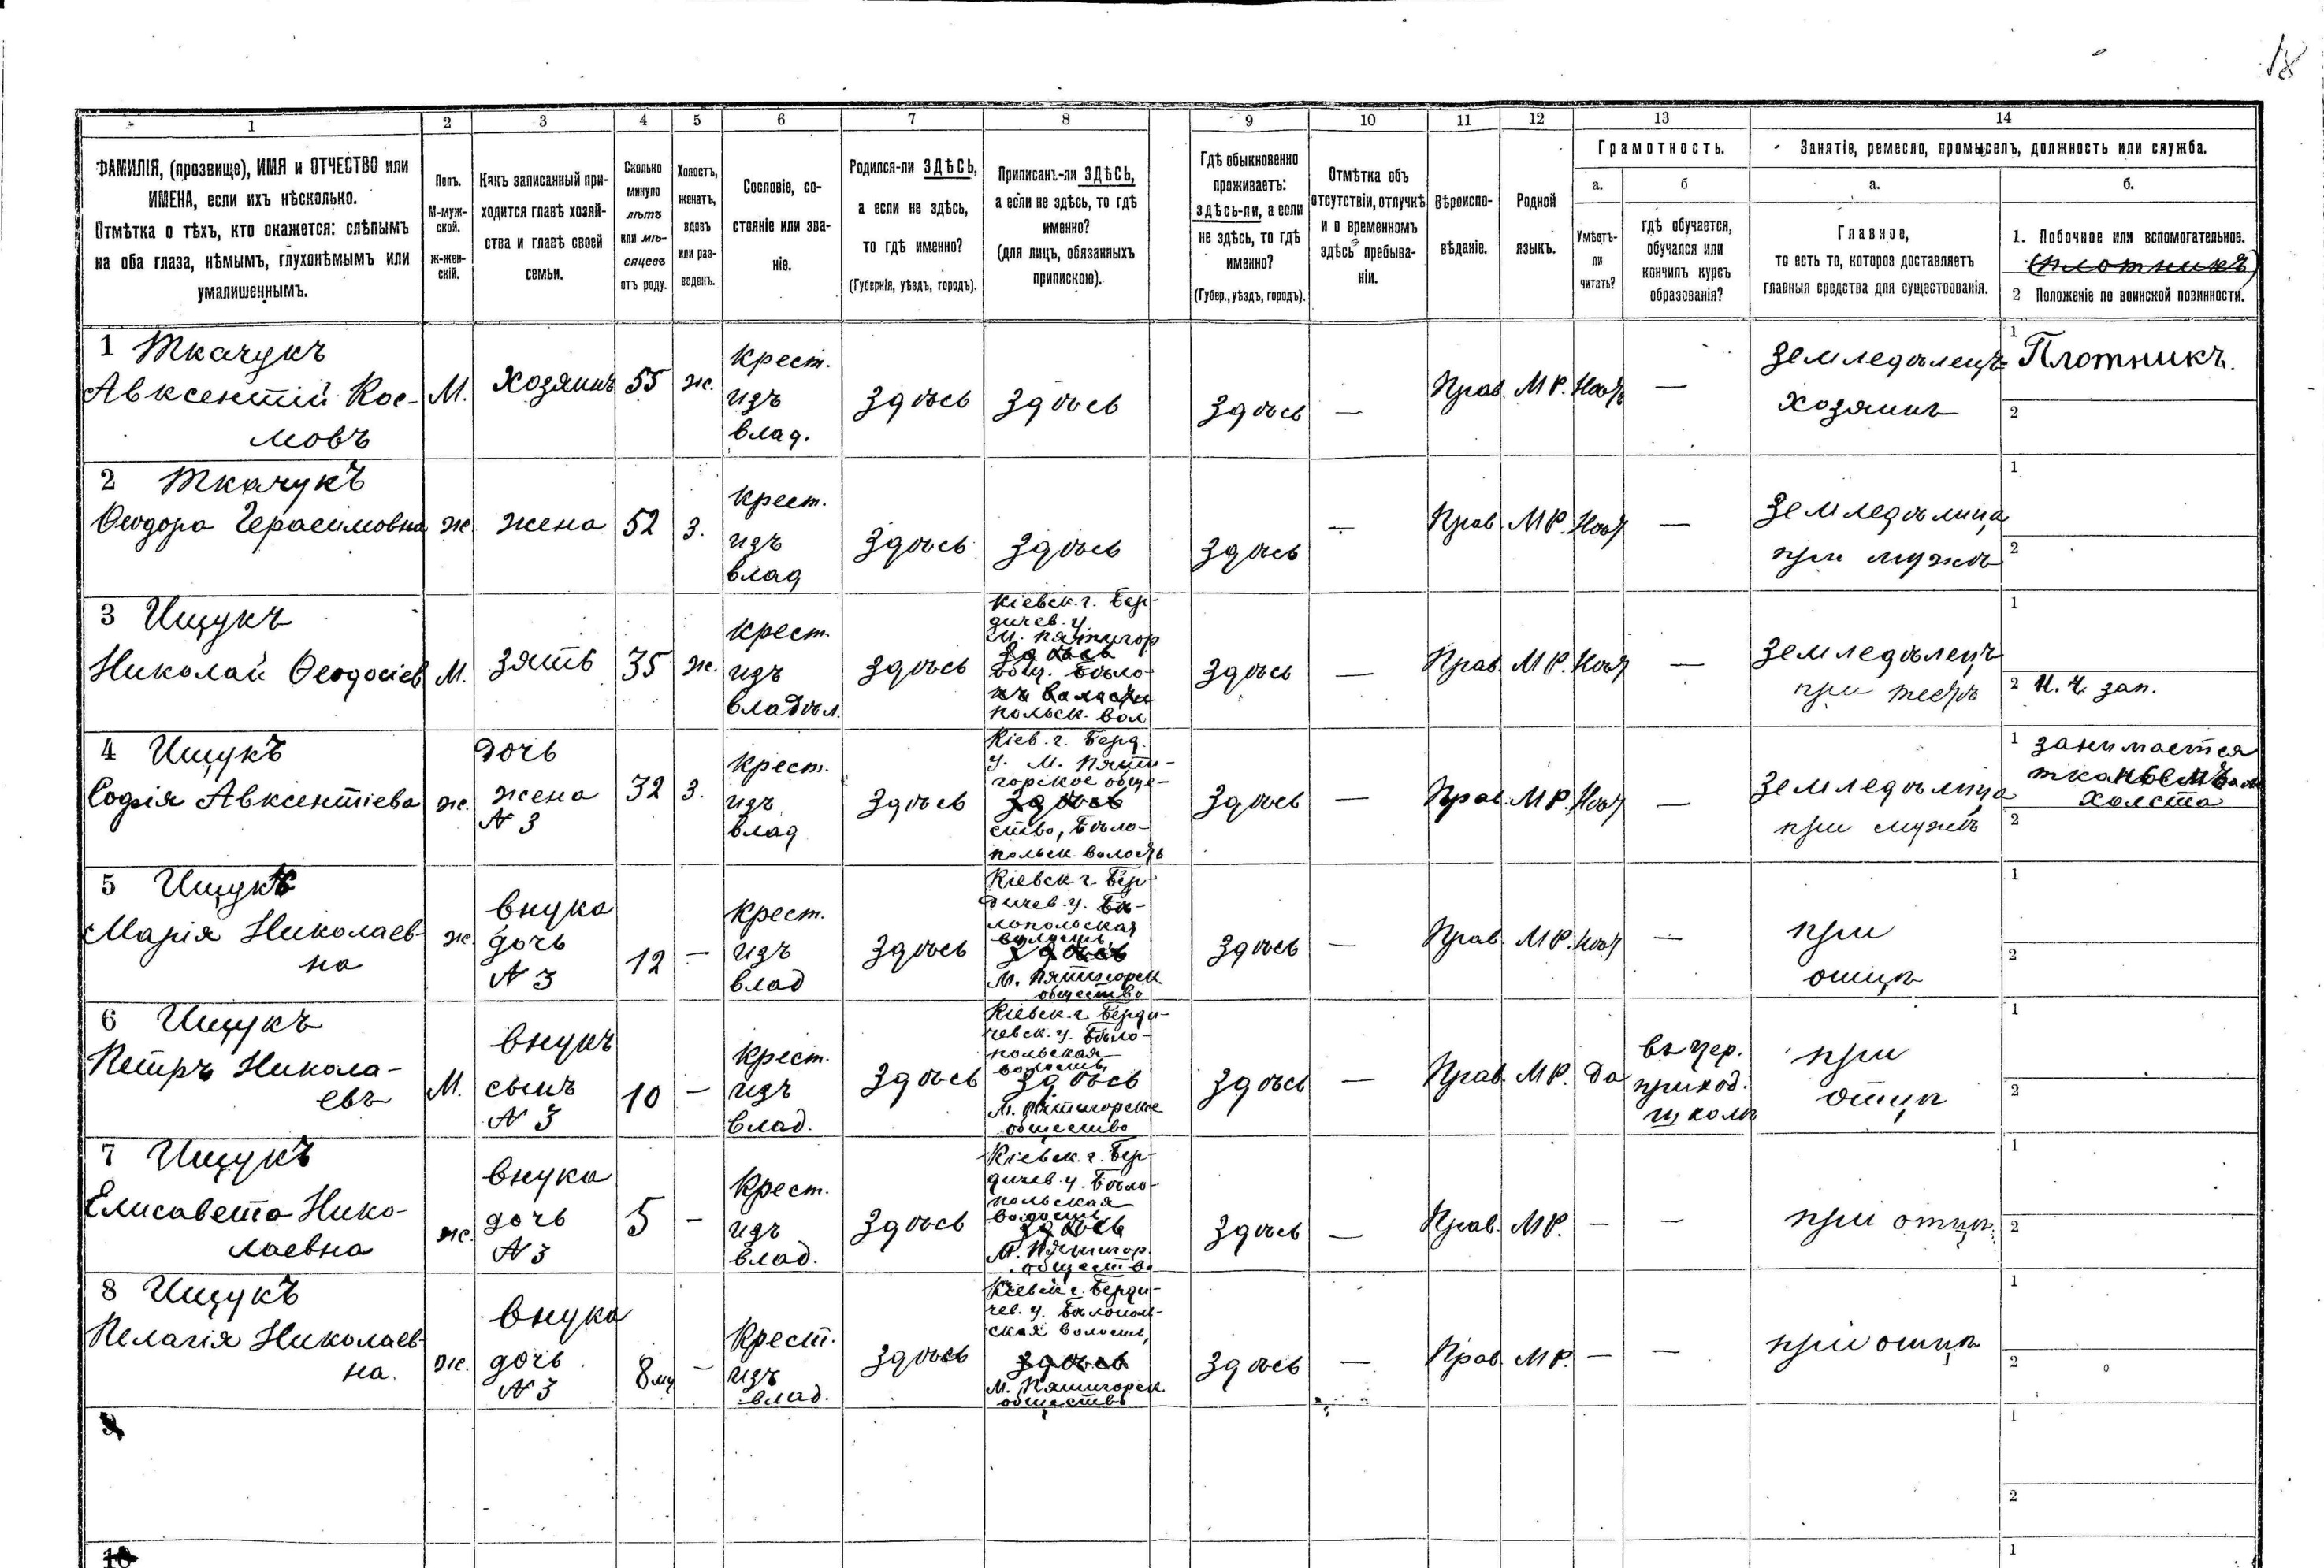 18
1
2
3
4
5
6
7
8
9
10
11
12
13
14
ФАМИЛІЯ, (прозвище), ИМЯ и ОТЧЕСТВО или
ИМЕНА, если ихъ нѣсколько.
Отмѣтка о тѣхъ, кто окажется: слѣпымъ
на оба глаза, нѣмымъ, глухонѣмымъ или
умалишеннымъ.
Полъ.
М-муж-
ской.
ж-жен-
скій.
Какъ записанный при-
ходится главѣ хозяй-
ства и главѣ своей
семьи.
Сколько
минуло
лѣтъ
или мѣ-
сяцевъ
отъ роду.
Холостъ,
женатъ,
вдовъ
или раз-
веденъ.
Сословіе, со-
стояніе или зва-
ніе.
Родился-ли ЗДѢСЬ,
а если не здѣсь,
то гдѣ именно?
(Губернія, уѣздъ, городъ).
Приписанъ-ли ЗДѢСЬ,
а если не здѣсь, то гдѣ
именно?
(для лицъ, обязанныхъ
припискою).
Гдѣ обыкновенно
проживаетъ:
здѣсь-ли, а если
не здѣсь, то гдѣ
именно?
(Губер., уѣздъ, городъ).
Отмѣтка объ
отсутствіи, отлучкѣ
и о временномъ
здѣсь пребыва-
ніи.
Вѣроиспо-
вѣданіе.
Родной
языкъ.
Грамотность.
а.
Умѣетъ-
ли
читать?
б
гдѣ обучается,
обучался или
кончилъ курсъ
образованія?
Занятіе, ремесло, промыселъ, должность или служба.
а.
Главное,
то есть то, которое доставляетъ
главныя средства для существованія.
б.
1. Побочное или вспомогательное.
(плотникъ)
2 Положеніе по воинской повинности.
1 Ткачукъ
Авксентій Кос-
мовъ
М.
Хозяинъ
55
ж.
крест.
изъ
влад.
Здѣсь
Здѣсь
Здѣсь
—
Прав.
МР.
Нѣтъ
—
Земледѣлецъ
хозяинъ
1 Плотникъ.
2
2 Ткачукъ
Ѳеодора Герасимовна
ж
жена
52
з.
крест.
изъ
влад
Здѣсь
Здѣсь
Здѣсь
—
Прав.
МР.
Нѣтъ
—
Земледѣлица
при мужѣ
1
2
3 Ищукъ
Николай Ѳеодосіев
М.
зять
35
ж.
крест.
изъ
владѣл.
Здѣсь
Кіевск. г. Бер-
дичев. у.
М. Пятигор
Здѣсь
общ. Бѣло-
польск. вол
Здѣсь
—
Прав.
МР.
Нѣтъ
—
Земледѣлецъ
при тестѣ
1
2 И. ч. зап.
4 Ищукъ
Софія Авксентіева
ж.
дочь
жена
№ 3
32
з.
крест.
изъ
влад
Здѣсь
Кіев. г. Берд.
у. М. Пяти-
горское обще-
Здѣсь
ство, Бѣло-
польск. волость
Здѣсь
—
Прав.
МР.
Нѣтъ
—
Земледѣлица
при мужѣ
1 занимается
тканьемъ
холста
2
5 Ищукъ
Марія Николаев-
на
ж.
внука
дочь
№ 3
12
—
крест.
изъ
влад
Здѣсь
Кіевск. г. Бер-
дичев. у. Бѣ-
лопольская
волость
Здѣсь
М. Пятигорск.
общество
Здѣсь
—
Прав.
МР.
Нѣтъ
—
при
отцѣ
1
2
6 Ищукъ
Петръ Никола-
евъ
М.
внукъ
сынъ
№ 3
10
—
крест.
изъ
влад.
Здѣсь
Кіевск. г. Берди-
чевск. у. Бѣло-
польская
волость,
Здѣсь
М. Пятигорское
общество
Здѣсь
—
Прав.
МР.
Да
въ цер.
приход.
школѣ
при
отцѣ
1
2
7 Ищукъ
Елисавета Нико-
лаевна
ж.
внука
дочь
№ 3
5
—
крест.
изъ
влад.
Здѣсь
Кіевск. г. Бер-
дичев. у. Бѣло-
польская
волость
Здѣсь
М. Пятигор.
общество
Здѣсь
—
Прав.
МР.
—
—
при отцѣ
1
2
8 Ищукъ
Пелагія Николаев-
на.
ж.
внука
дочь
№ 3
8 мц
—
Крест.
изъ
влад.
Здѣсь
Кіевск. г. Берди-
чев. у. Бѣлополь-
ская волость,
Здѣсь
М. Пятигорск.
общество
Здѣсь
—
Прав.
МР.
—
—
при отцѣ
1
2
9
1
2
10
1